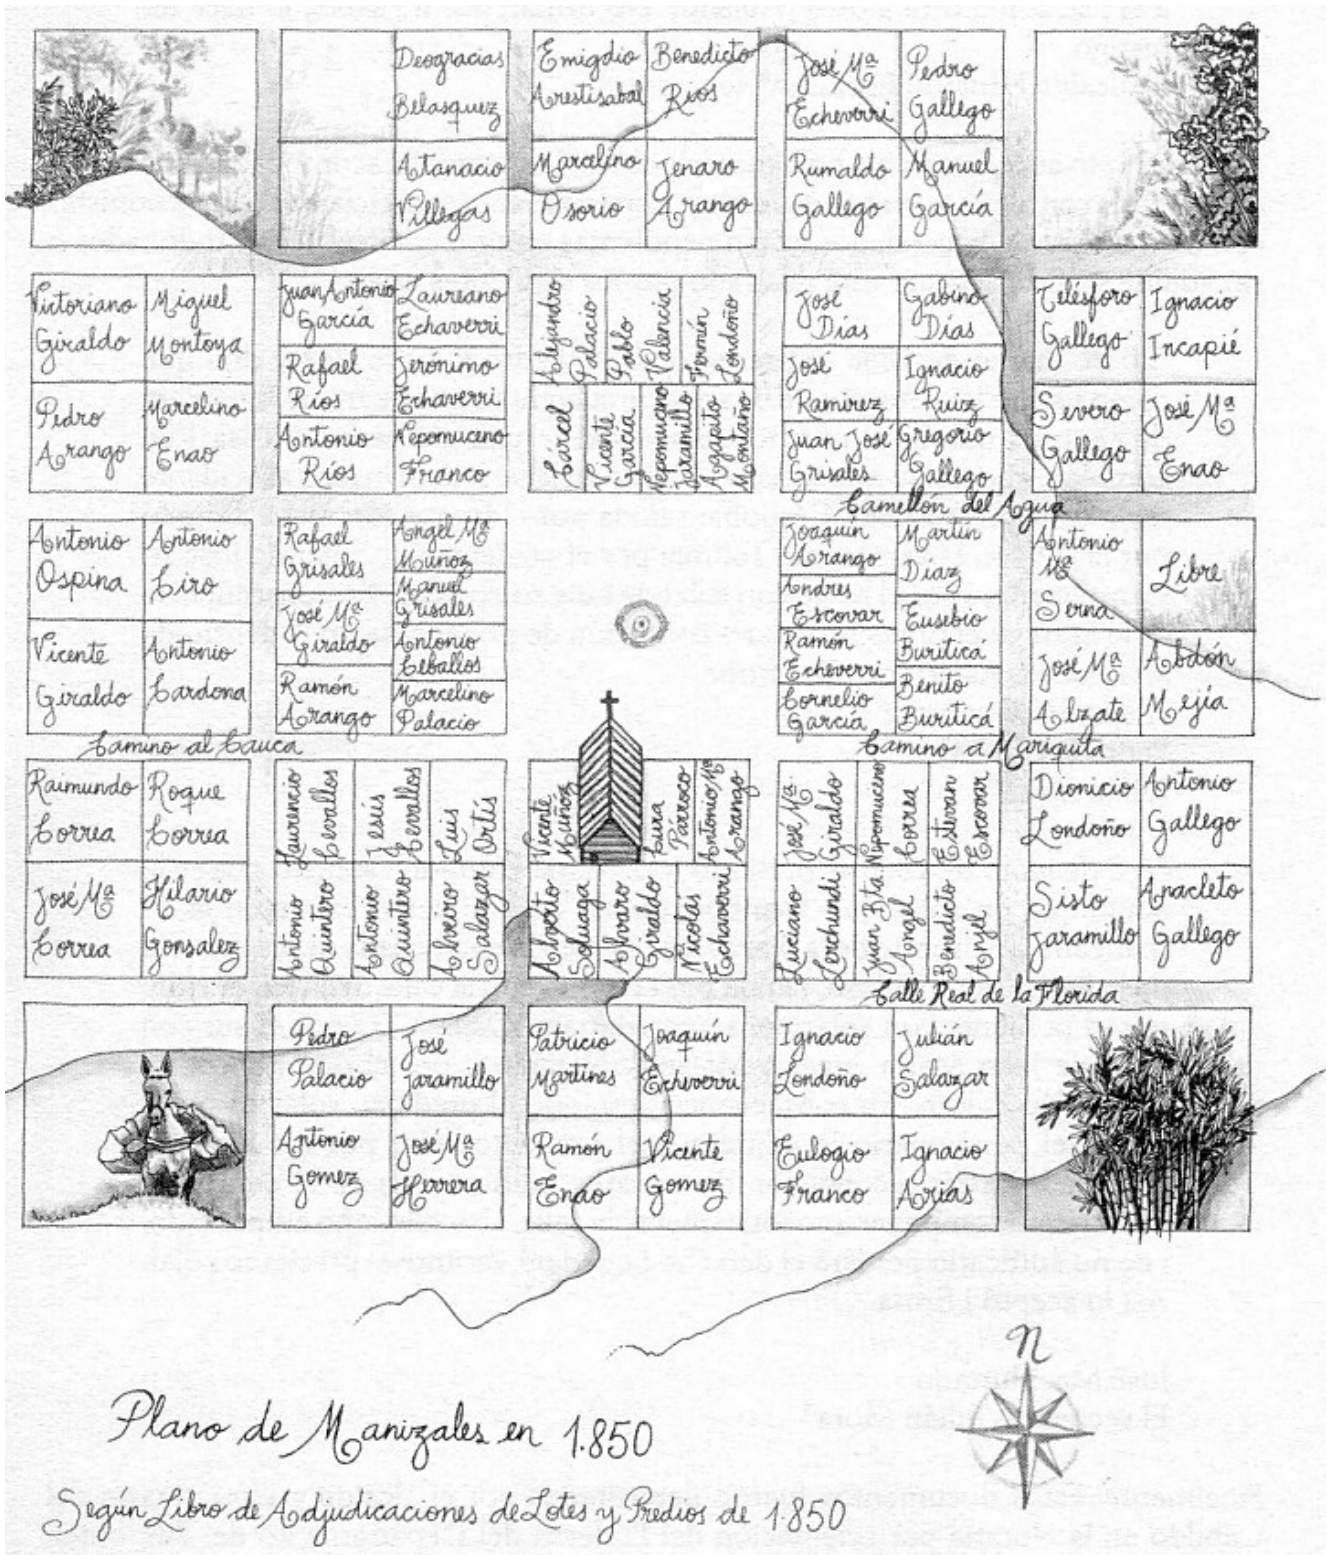 Deogracias
Belasquez
Emigdio
Arestisabal
Benedicto
Ríos
José Mª
Echeverri
Pedro
Gallego
Atanacio
Villegas
Marcelino
Osorio
Jenaro
Arango
Rumaldo
Gallego
Manuel
García
Victoriano
Giraldo
Miguel
Montoya
Pedro
Arango
Marcelino
Enao
Juan Antonio
García
Laureano
Echaverri
Rafael
Ríos
Jerónimo
Echaverri
Antonio
Ríos
Nepomuceno
Franco
Alejandro
Palacio
Pablo
Valencia
Fermín
Londoño
Cárcel
Vicente
García
Nepomuceno
Jaramillo
Agapito
Montaño
José
Días
Gabino
Días
José
Ramirez
Ignacio
Ruiz
Juan José
Grisales
Gregorio
Gallego
Telésforo
Gallego
Ignacio
Incapié
Severo
Gallego
José Mª
Enao
Camellón del Agua
Antonio
Ospina
Antonio
Ciro
Vicente
Giraldo
Antonio
Cardona
Rafael
Grisales
Angel Mª
Muñoz
José Mª
Giraldo
Manuel
Grisales
Antonio
Ceballos
Ramón
Arango
Marcelino
Palacio
Joaquín
Arango
Martín
Díaz
Andres
Escovar
Eusebio
Buriticá
Ramón
Echeverri
Cornelio
García
Benito
Buriticá
Antonio
Mª
Serna
Libre
José Mª
Alzate
Abdón
Mejía
Camino al Cauca
Camino a Mariquita
Raimundo
Correa
Roque
Correa
José Mª
Correa
Hilario
Gonsalez
Laurencio
Cevallos
Jesús
Cevallos
Luis
Ortís
Antonio
Quintero
Antonio
Quintero
Alviro
Salazar
Vicente
Muñoz
Cura
Párroco
Antonio Mª
Arango
Alverto
Soluaga
Alvaro
Giraldo
Nicolás
Echaverri
José Mª
Giraldo
Nepomuceno
Correa
Estevan
Escovar
Luciano
Lerchundi
Juan Bta.
Angel
Benedicto
Angel
Dionicio
Londoño
Antonio
Gallego
Sisto
Jaramillo
Anacleto
Gallego
Calle Real de la Florida
Pedro
Palacio
José
Jaramillo
Antonio
Gomez
José Mª
Herrera
Patricio
Martines
Joaquín
Echeverri
Ramón
Enao
Vicente
Gomez
Ignacio
Londoño
Julián
Salazar
Eulogio
Franco
Ignacio
Arias
N
Plano de Manizales en 1.850
Según Libro de Adjudicaciones de Lotes y Predios de 1.850